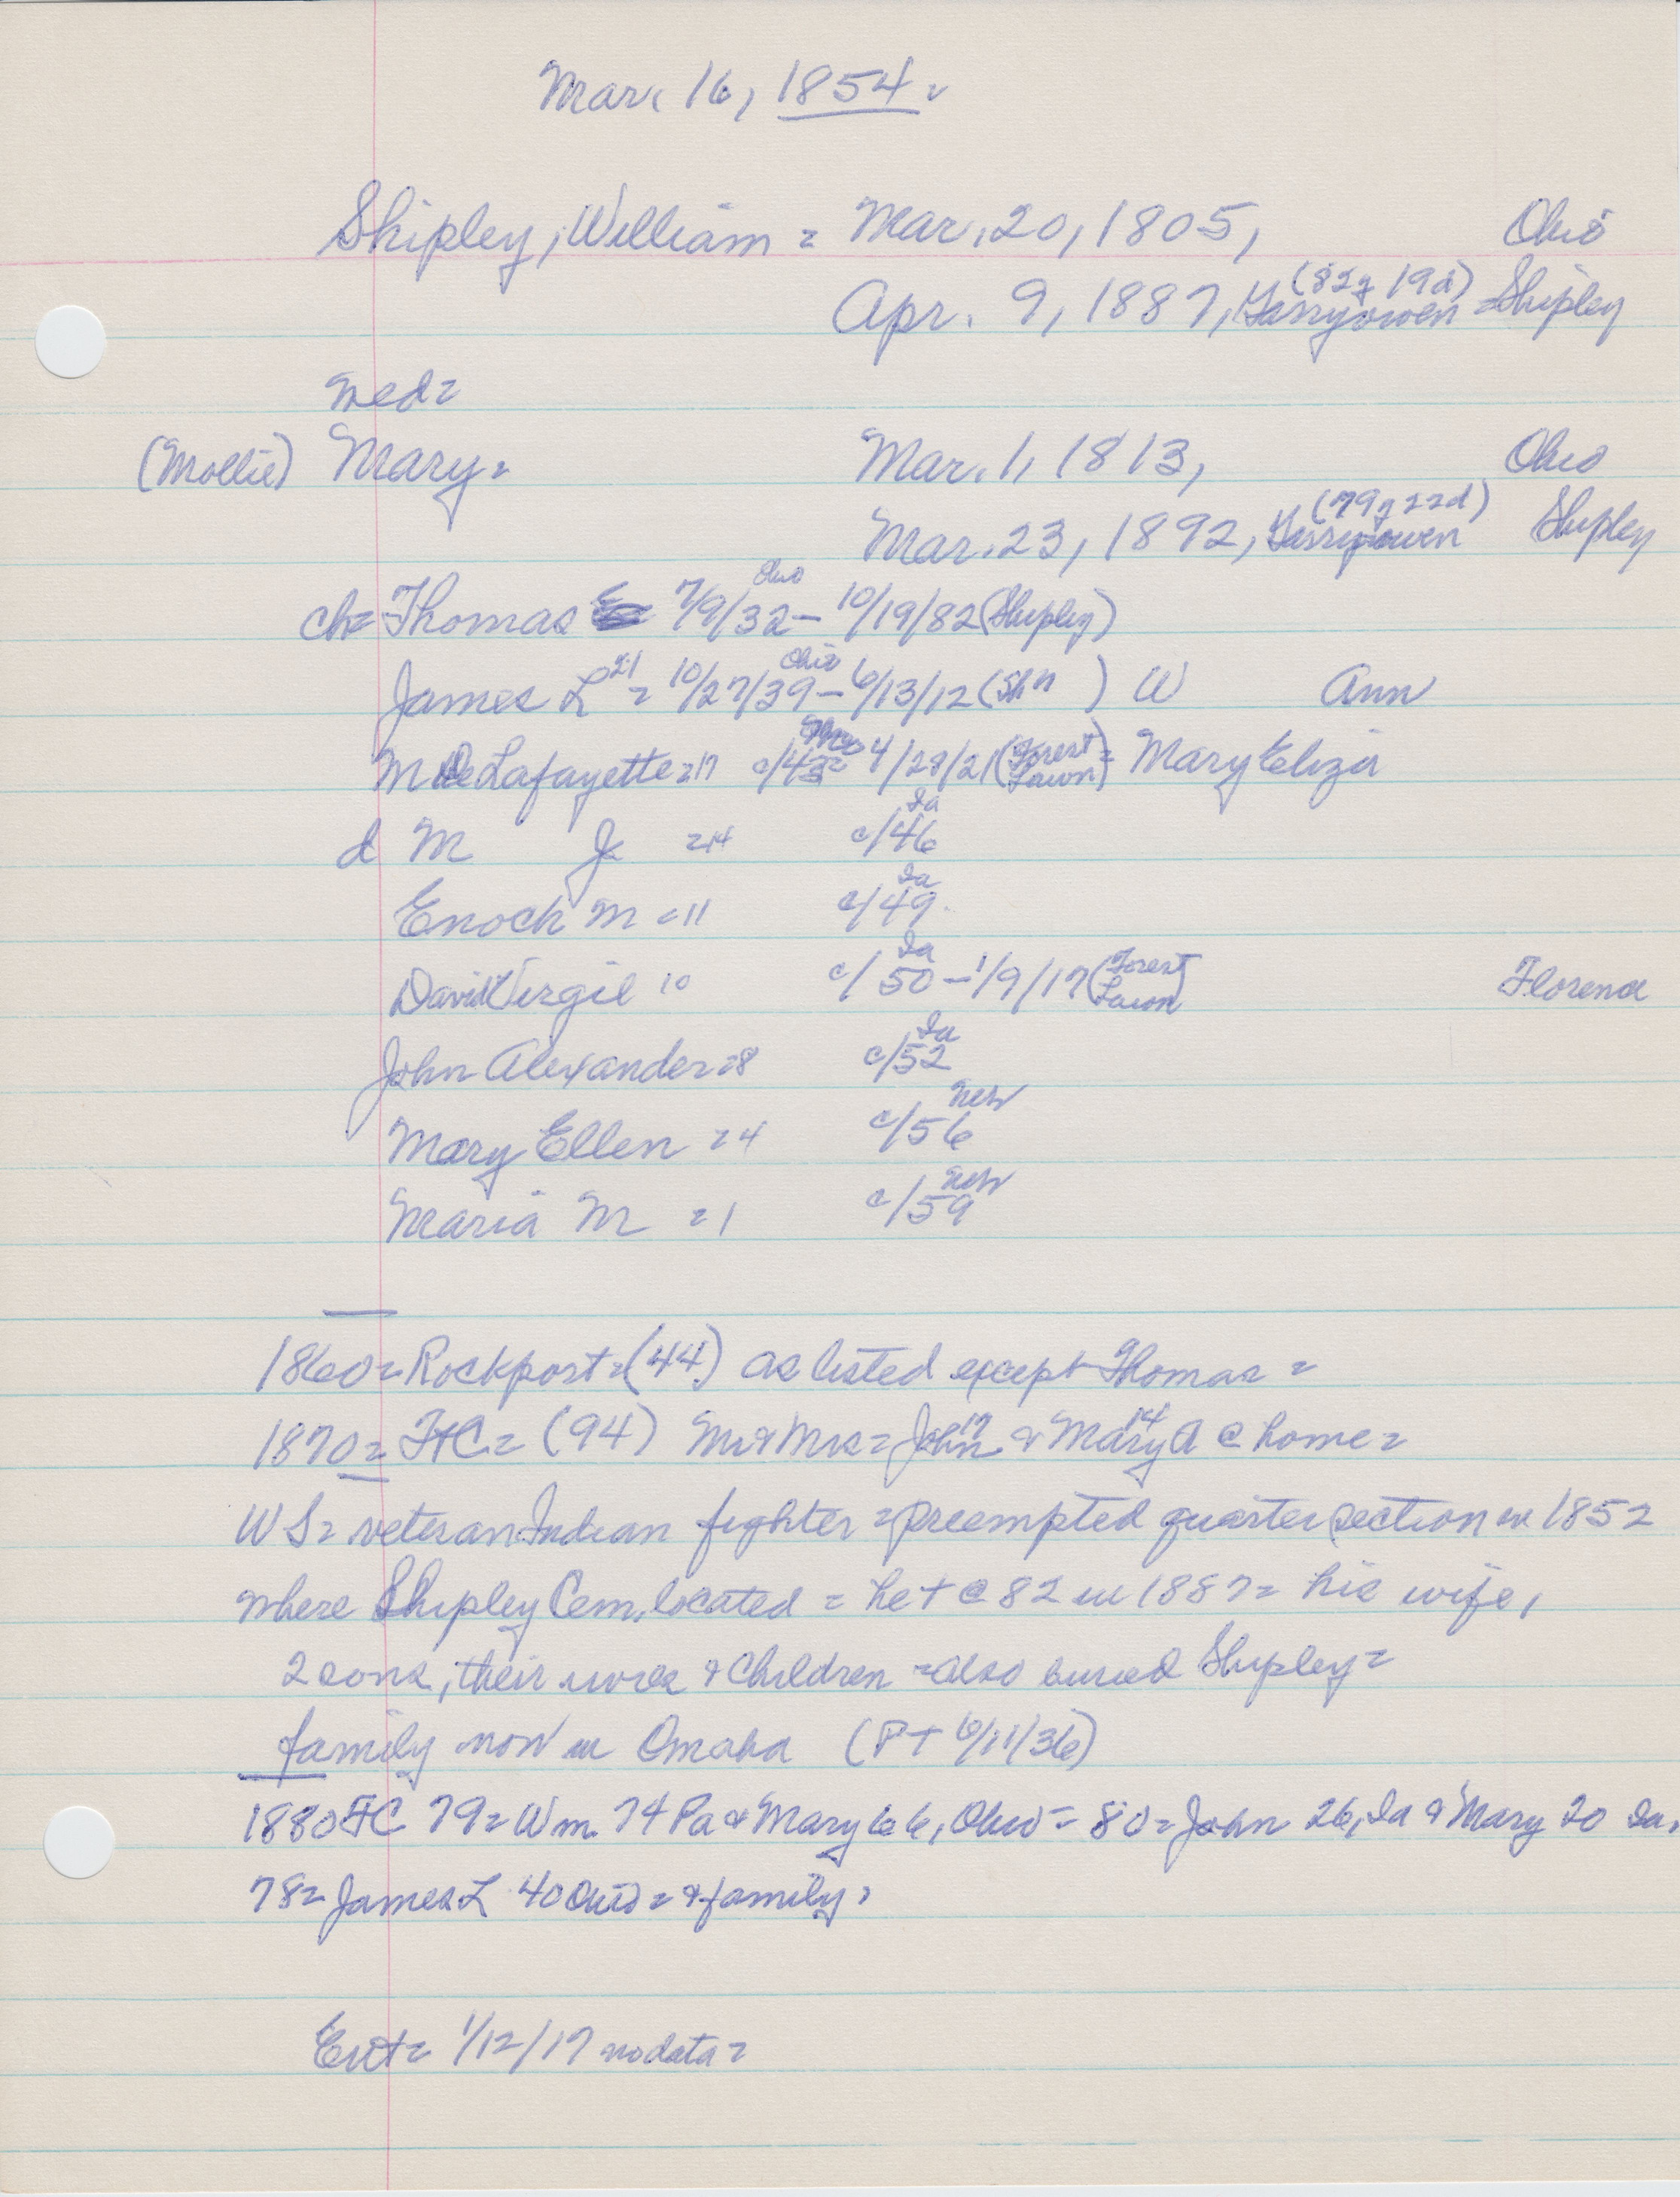 Mar. 16, 1854.
Shipley, William = Mar. 20, 1805, Ohio
(82y 19d)
Apr. 9, 1887, Garryowen = Shipley
med=
(Mollie) Mary = Mar. 1, 1813, Ohio
(79y 22d)
Mar. 23, 1892, Garryowen Shipley
ch= Thomas 7/9/32 Ohio – 10/19/82 (Shipley)
James L 21 = 10/27/39 Ohio – 6/13/12 (Sh n ) W Ann
M De Lafayette = 17 c/43 Mo = 4/28/21 (Forest Lawn) = Mary Eliza
d M J = 14 c/46 Ia
Enoch M = 11 c/49 Ia
David Virgil 10 c/50 Ia – 1/9/17 (Forest Lawn) Florence
John Alexander = 8 c/52 Ia
Mary Ellen = 4 c/56 Neb
Maria M = 1 c/59 Neb
1860 = Rockport = (44) as listed except Thomas =
1870 = FtC = (94) Mr & Mrs = John 17 & Mary A 14 @ home =
WS = veteran Indian fighter = preempted quarter section in 1852
where Shipley Cem. located = he + @ 82 in 1887 = his wife,
2 sons, their wives & children = also buried Shipley =
family now in Omaha (PT 6/11/36)
1880 FC 79 = Wm. 74 Pa & Mary 66, Ohio = 80 = John 26, Ia & Mary 20 Ia.
78 = James L 40 Ohio = & family =
Ent = 1/12/17 no data =